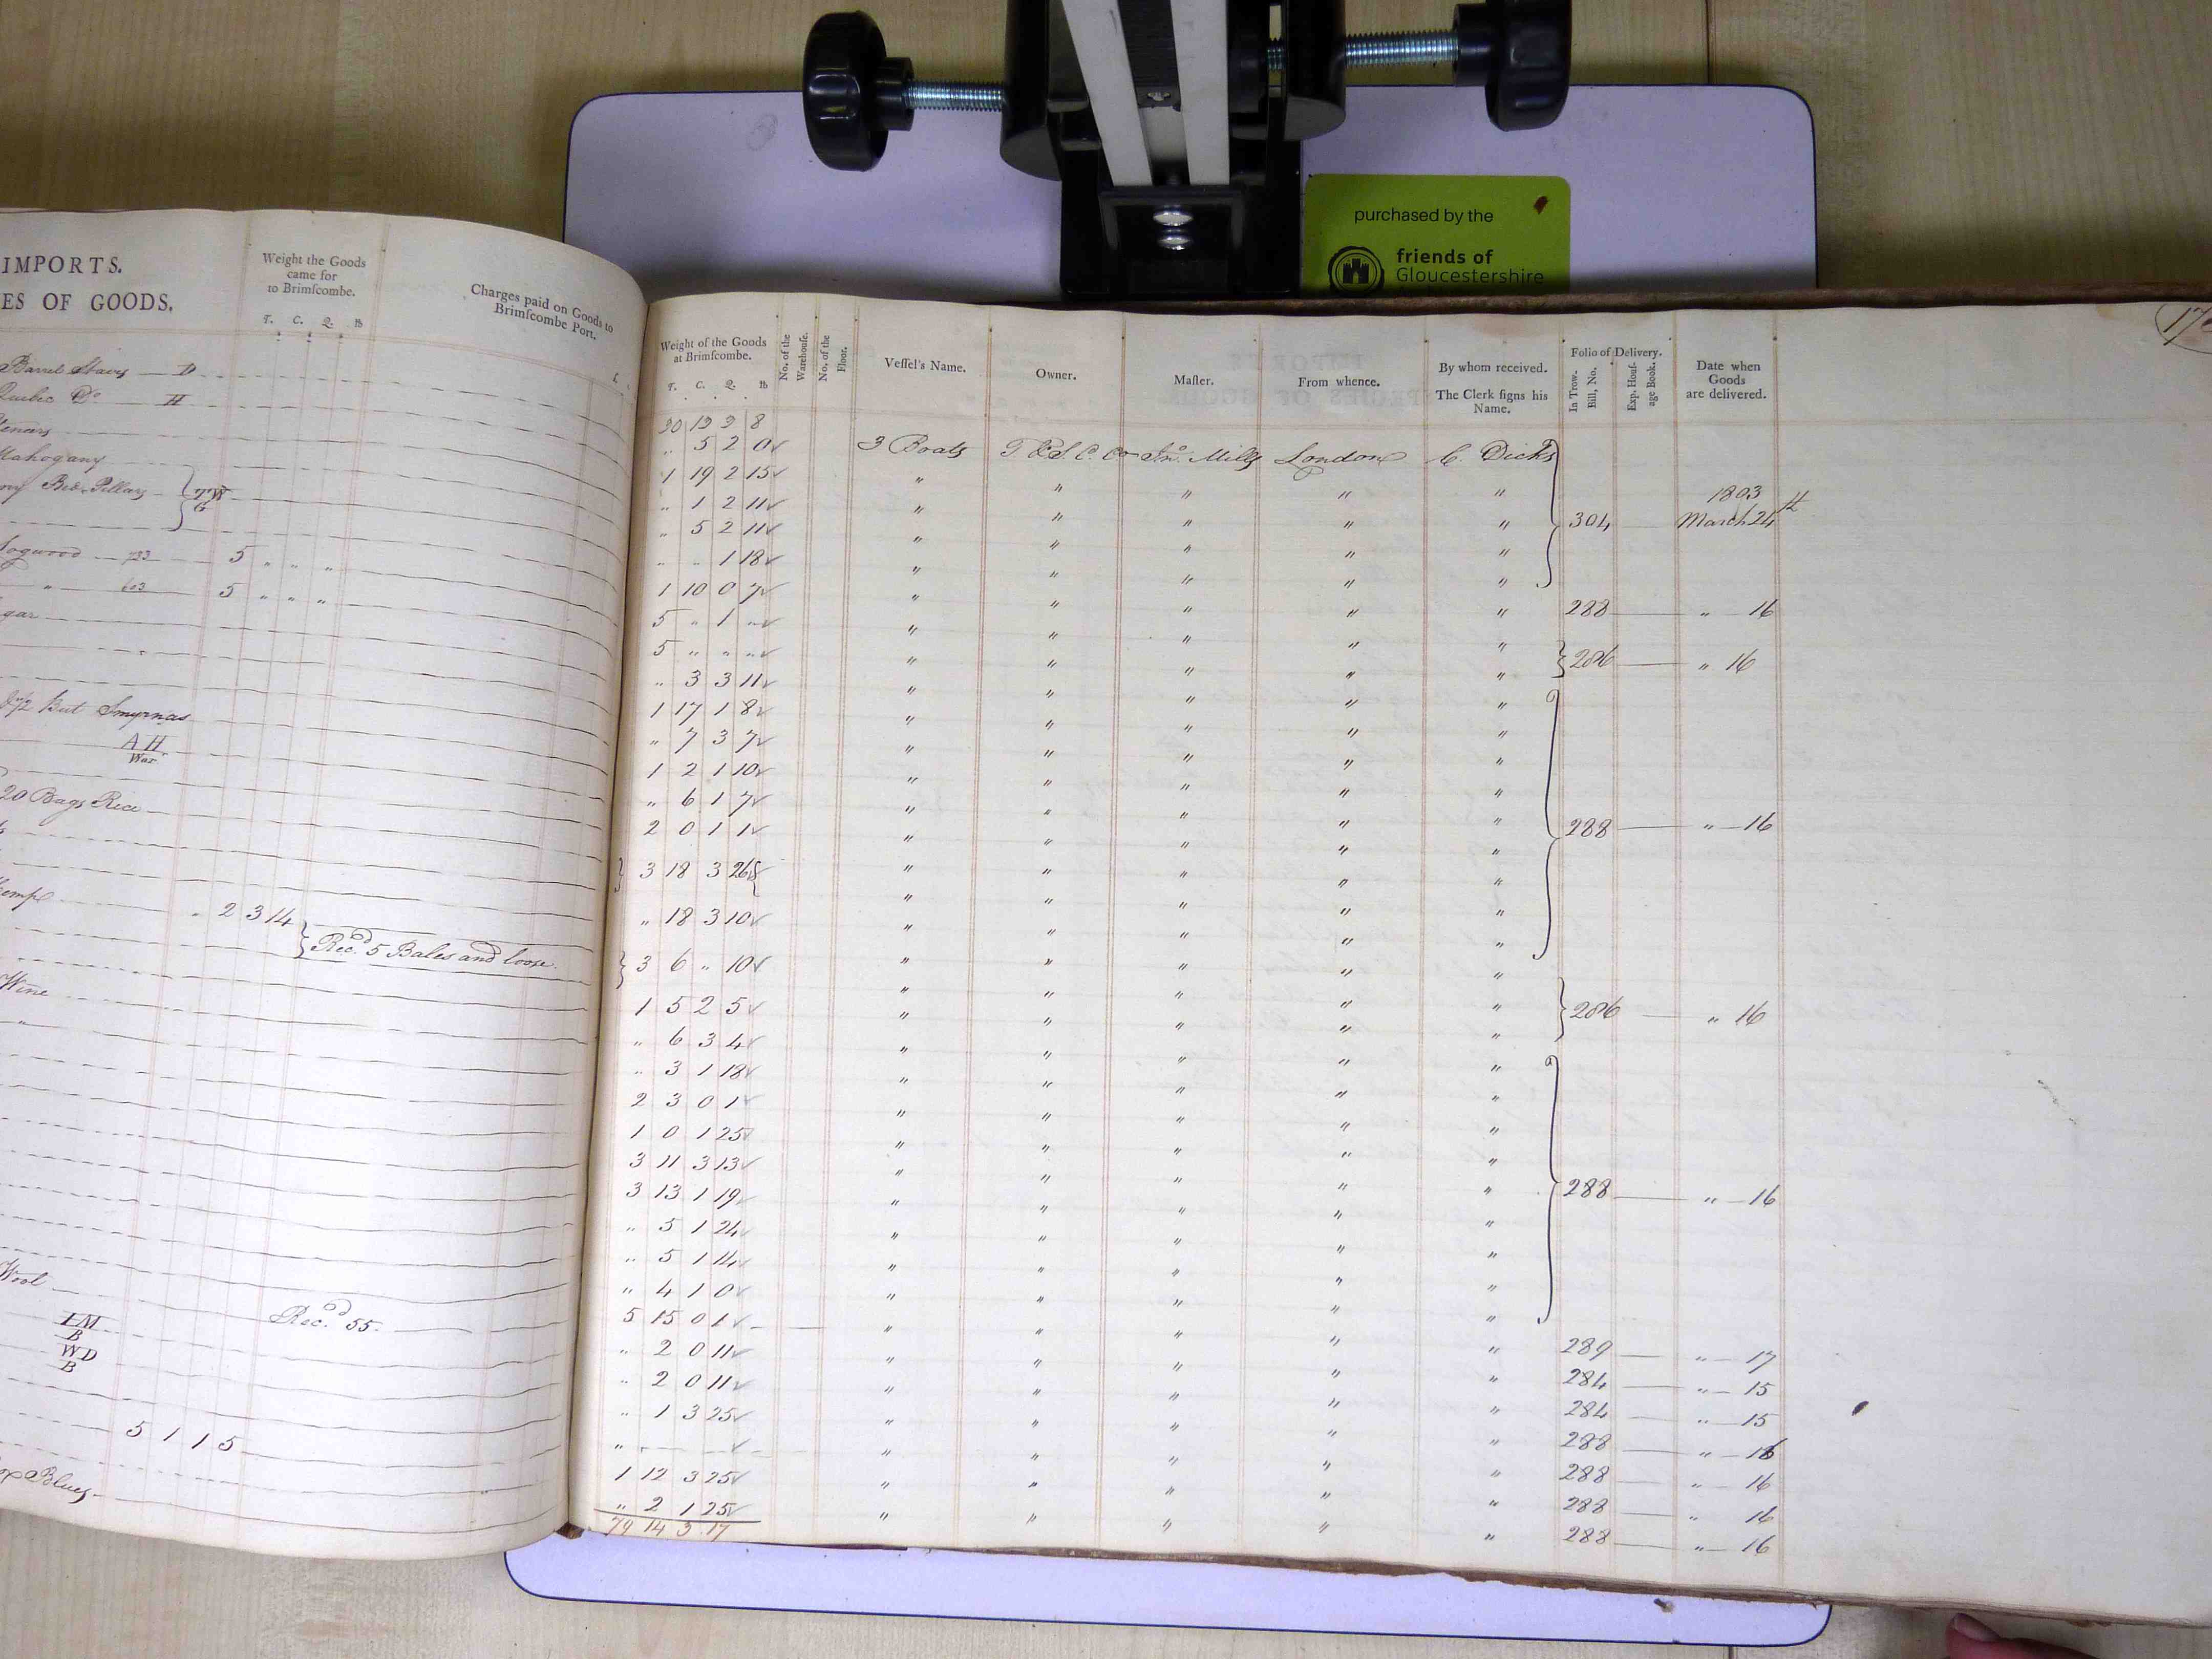 purchased by the
friends of
Gloucestershire
IMPORTS.
ES OF GOODS.
Weight the Goods
came for
to Brimscombe.
T. C. Q. lb
Charges paid on Goods to
Brimscombe Port.
Barrel Staves — D
Quebec Do — H
Mahogany
Bed Pillars
Logwood — 733 — 5 " " "
" — 603 — 5 " " "
gar
Butt Smyrnas
A H
War
20 Bags Rice
Hemp
" 2 3 14
Recd. 5 Bales and loose
Wine
"
Wool
Recd. 55
IM
B
WD
B
5 1 15
Blues
Weight of the Goods
at Brimscombe.
T. C. Q. lb
No. of the
Warehouse.
No. of the
Floor.
Vessel's Name.
Owner.
Master.
From whence.
By whom received.
The Clerk signs his
Name.
Folio of Delivery.
In Trow.
Bill, No.
Exp. House-
age Book.
Date when
Goods
are delivered.
30 19 3 8
" 5 2 0 3 Boats T & S C Co Jno. Mills London C. Dicks
1 19 2 15 " " " " "
1803
" 1 2 11 " " " " "
" 5 2 11 " " " " " 304 March 24th
" " 1 18 " " " " "
1 10 0 7 " " " " "
5 " 1 " " " " " " 288 " 16
5 " " " " " " " "
" 3 3 11 " " " " " 286 " 16
1 17 1 8 " " " " "
" 7 3 7 " " " " "
1 2 1 10 " " " " "
" 6 1 7 " " " " "
2 0 1 1 " " " " " 288 " 16
3 18 3 26 " " " " "
" 18 3 10 " " " " "
3 6 " 10 " " " " "
1 5 2 5 " " " " " 286 " 16
" 6 3 4 " " " " "
" 3 1 18 " " " " "
2 3 0 1 " " " " "
1 0 1 25 " " " " "
3 11 3 13 " " " " "
3 13 1 19 " " " " " 288 " 16
" 5 1 24 " " " " "
" 5 1 14 " " " " "
" 4 1 0 " " " " "
5 15 0 1 " " " " "
" 2 0 11 " " " " " 289 " 17
" 2 0 11 " " " " " 284 " 15
" 1 3 25 " " " " " 284 " 15
" " " " " " 288 " 16
1 12 3 25 " " " " " 288 " 16
" 2 1 25 " " " " " 288 " 16
79 14 3 17 " " " " " 288 " 16